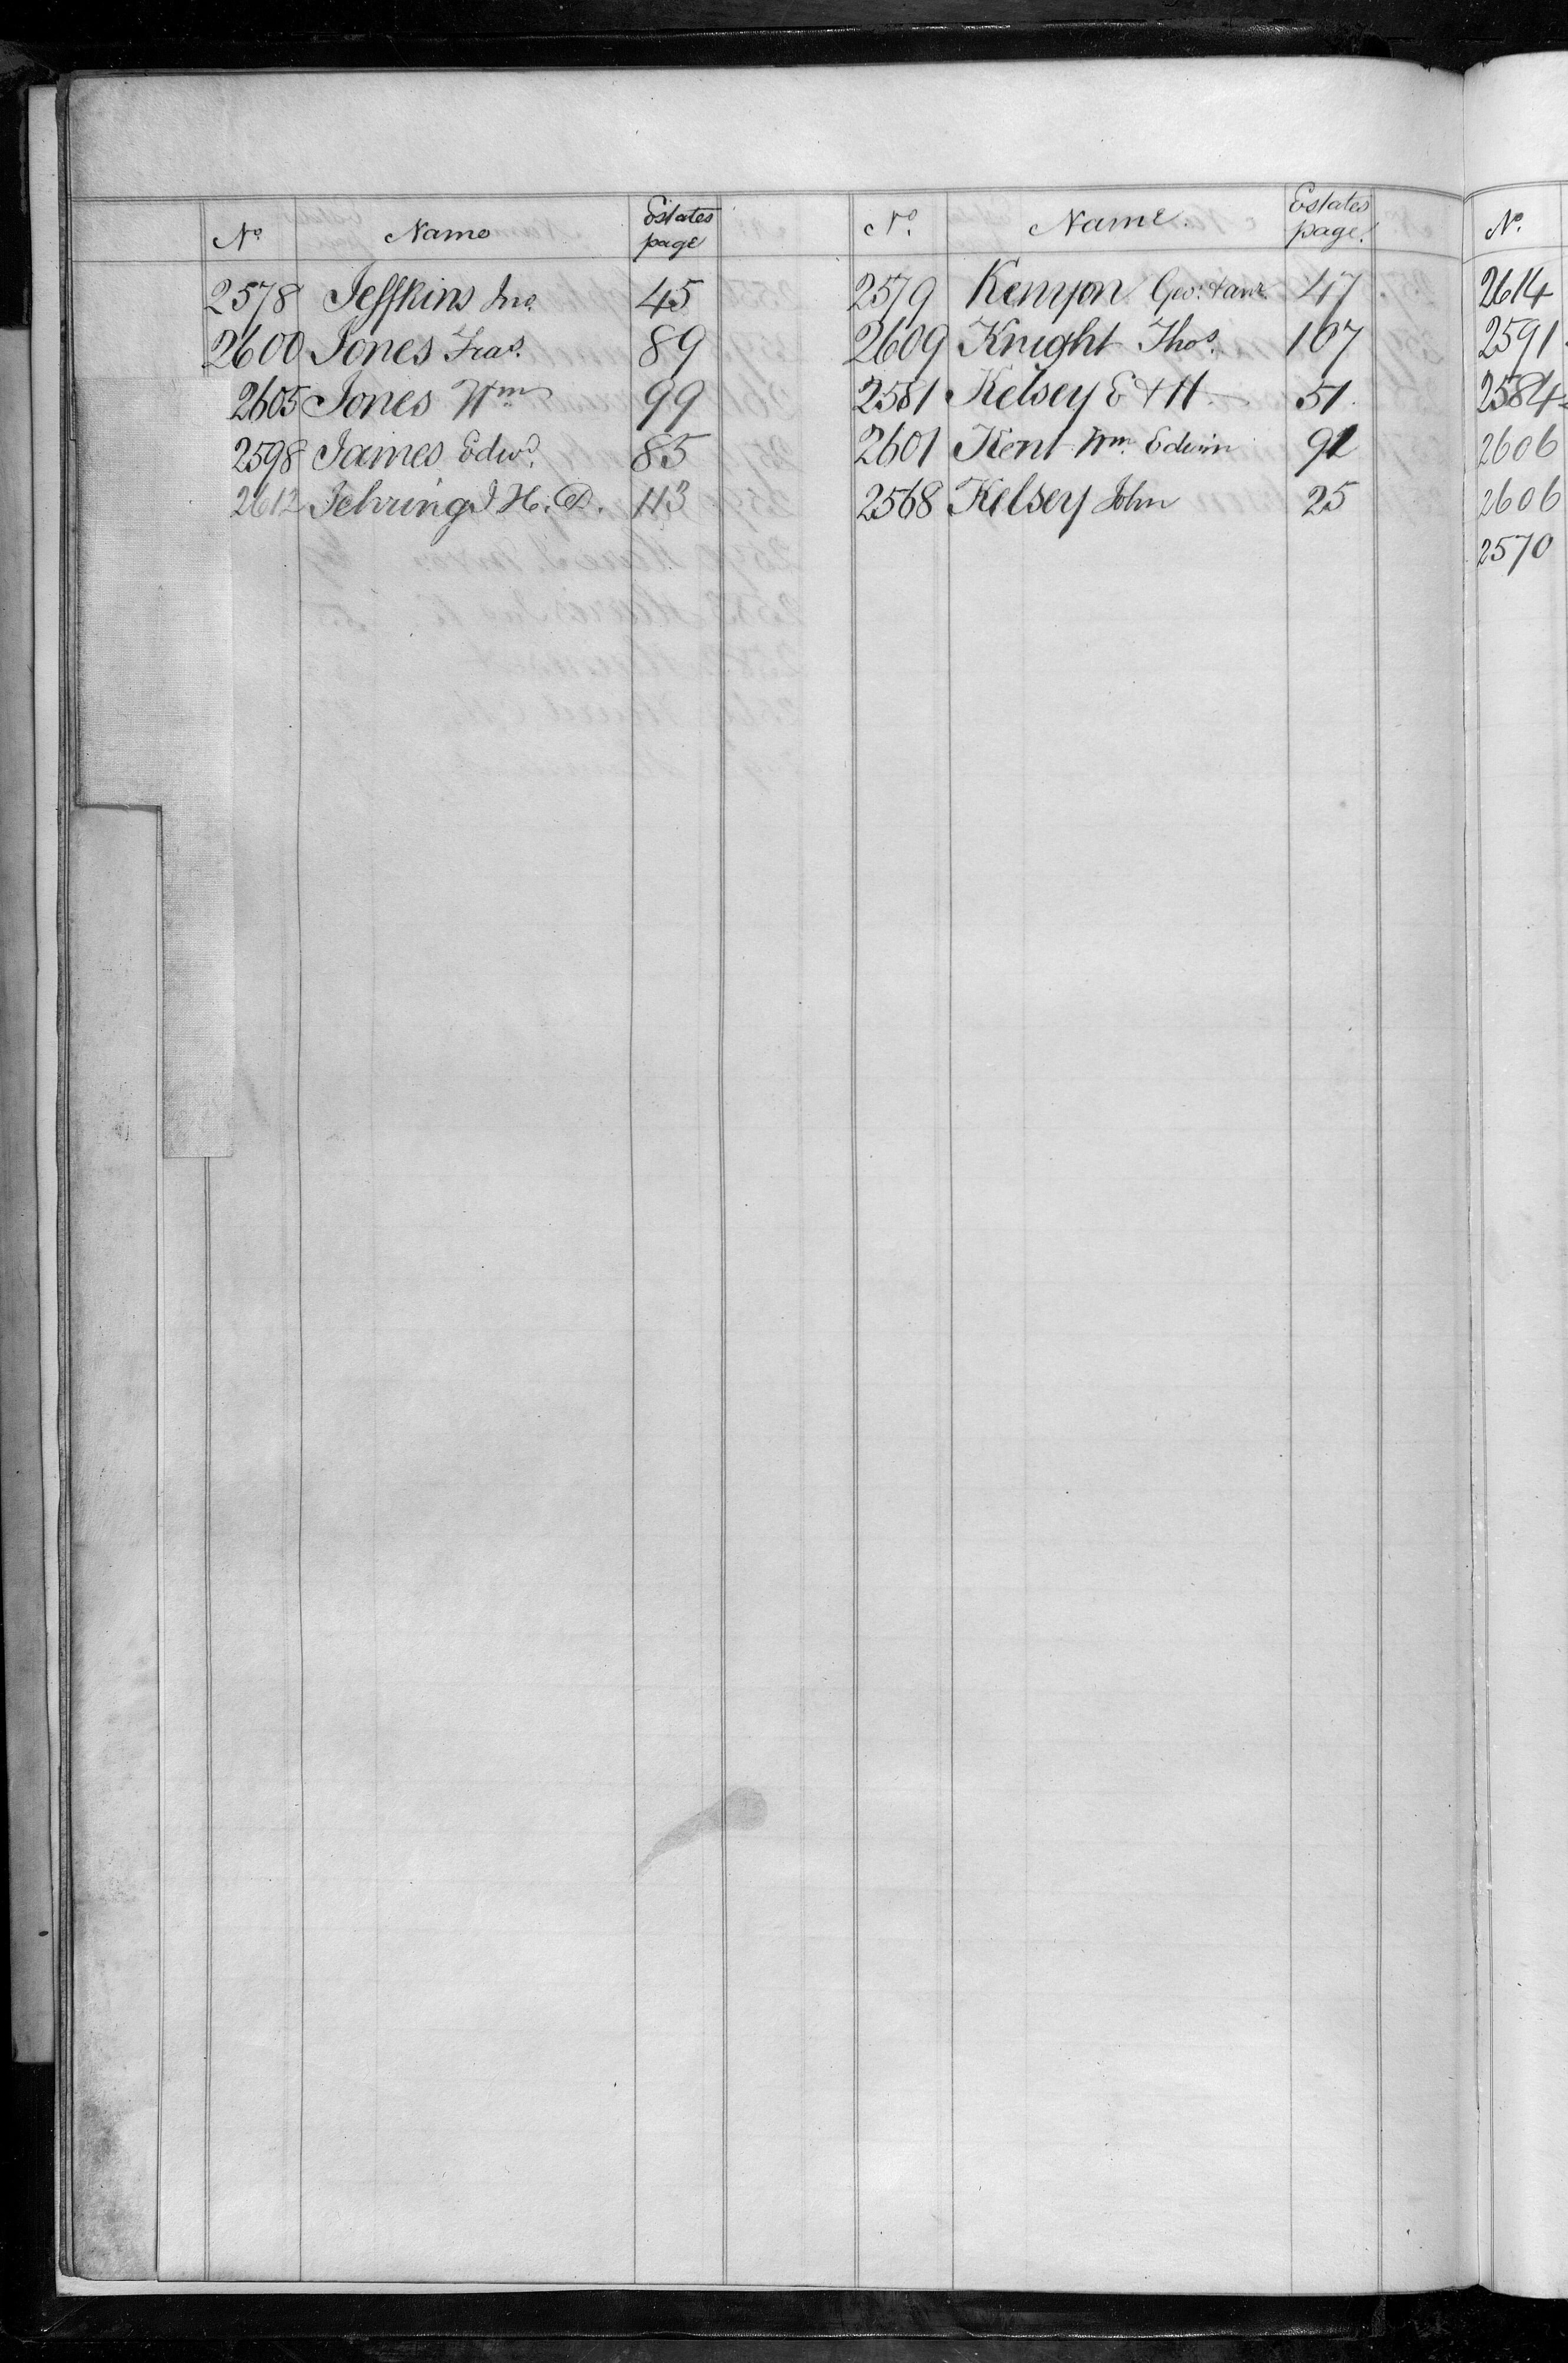 No. Name Estates page
2578 Jeffkins Jno. 45
2600 Jones Fras. 89
2605 Jones Wm 99
2598 James Edwd. 85
2612 Jehring J H. D. 113
No. Name. Estates page.
2579 Kenyon Geo. 47
2609 Knight Thos. 107
2581 Kelsey E & H 51.
2601 Kent Wm. Edwin 91
2568 Kelsey John 25
No.
2614
2591
2584
2606
2606
2570